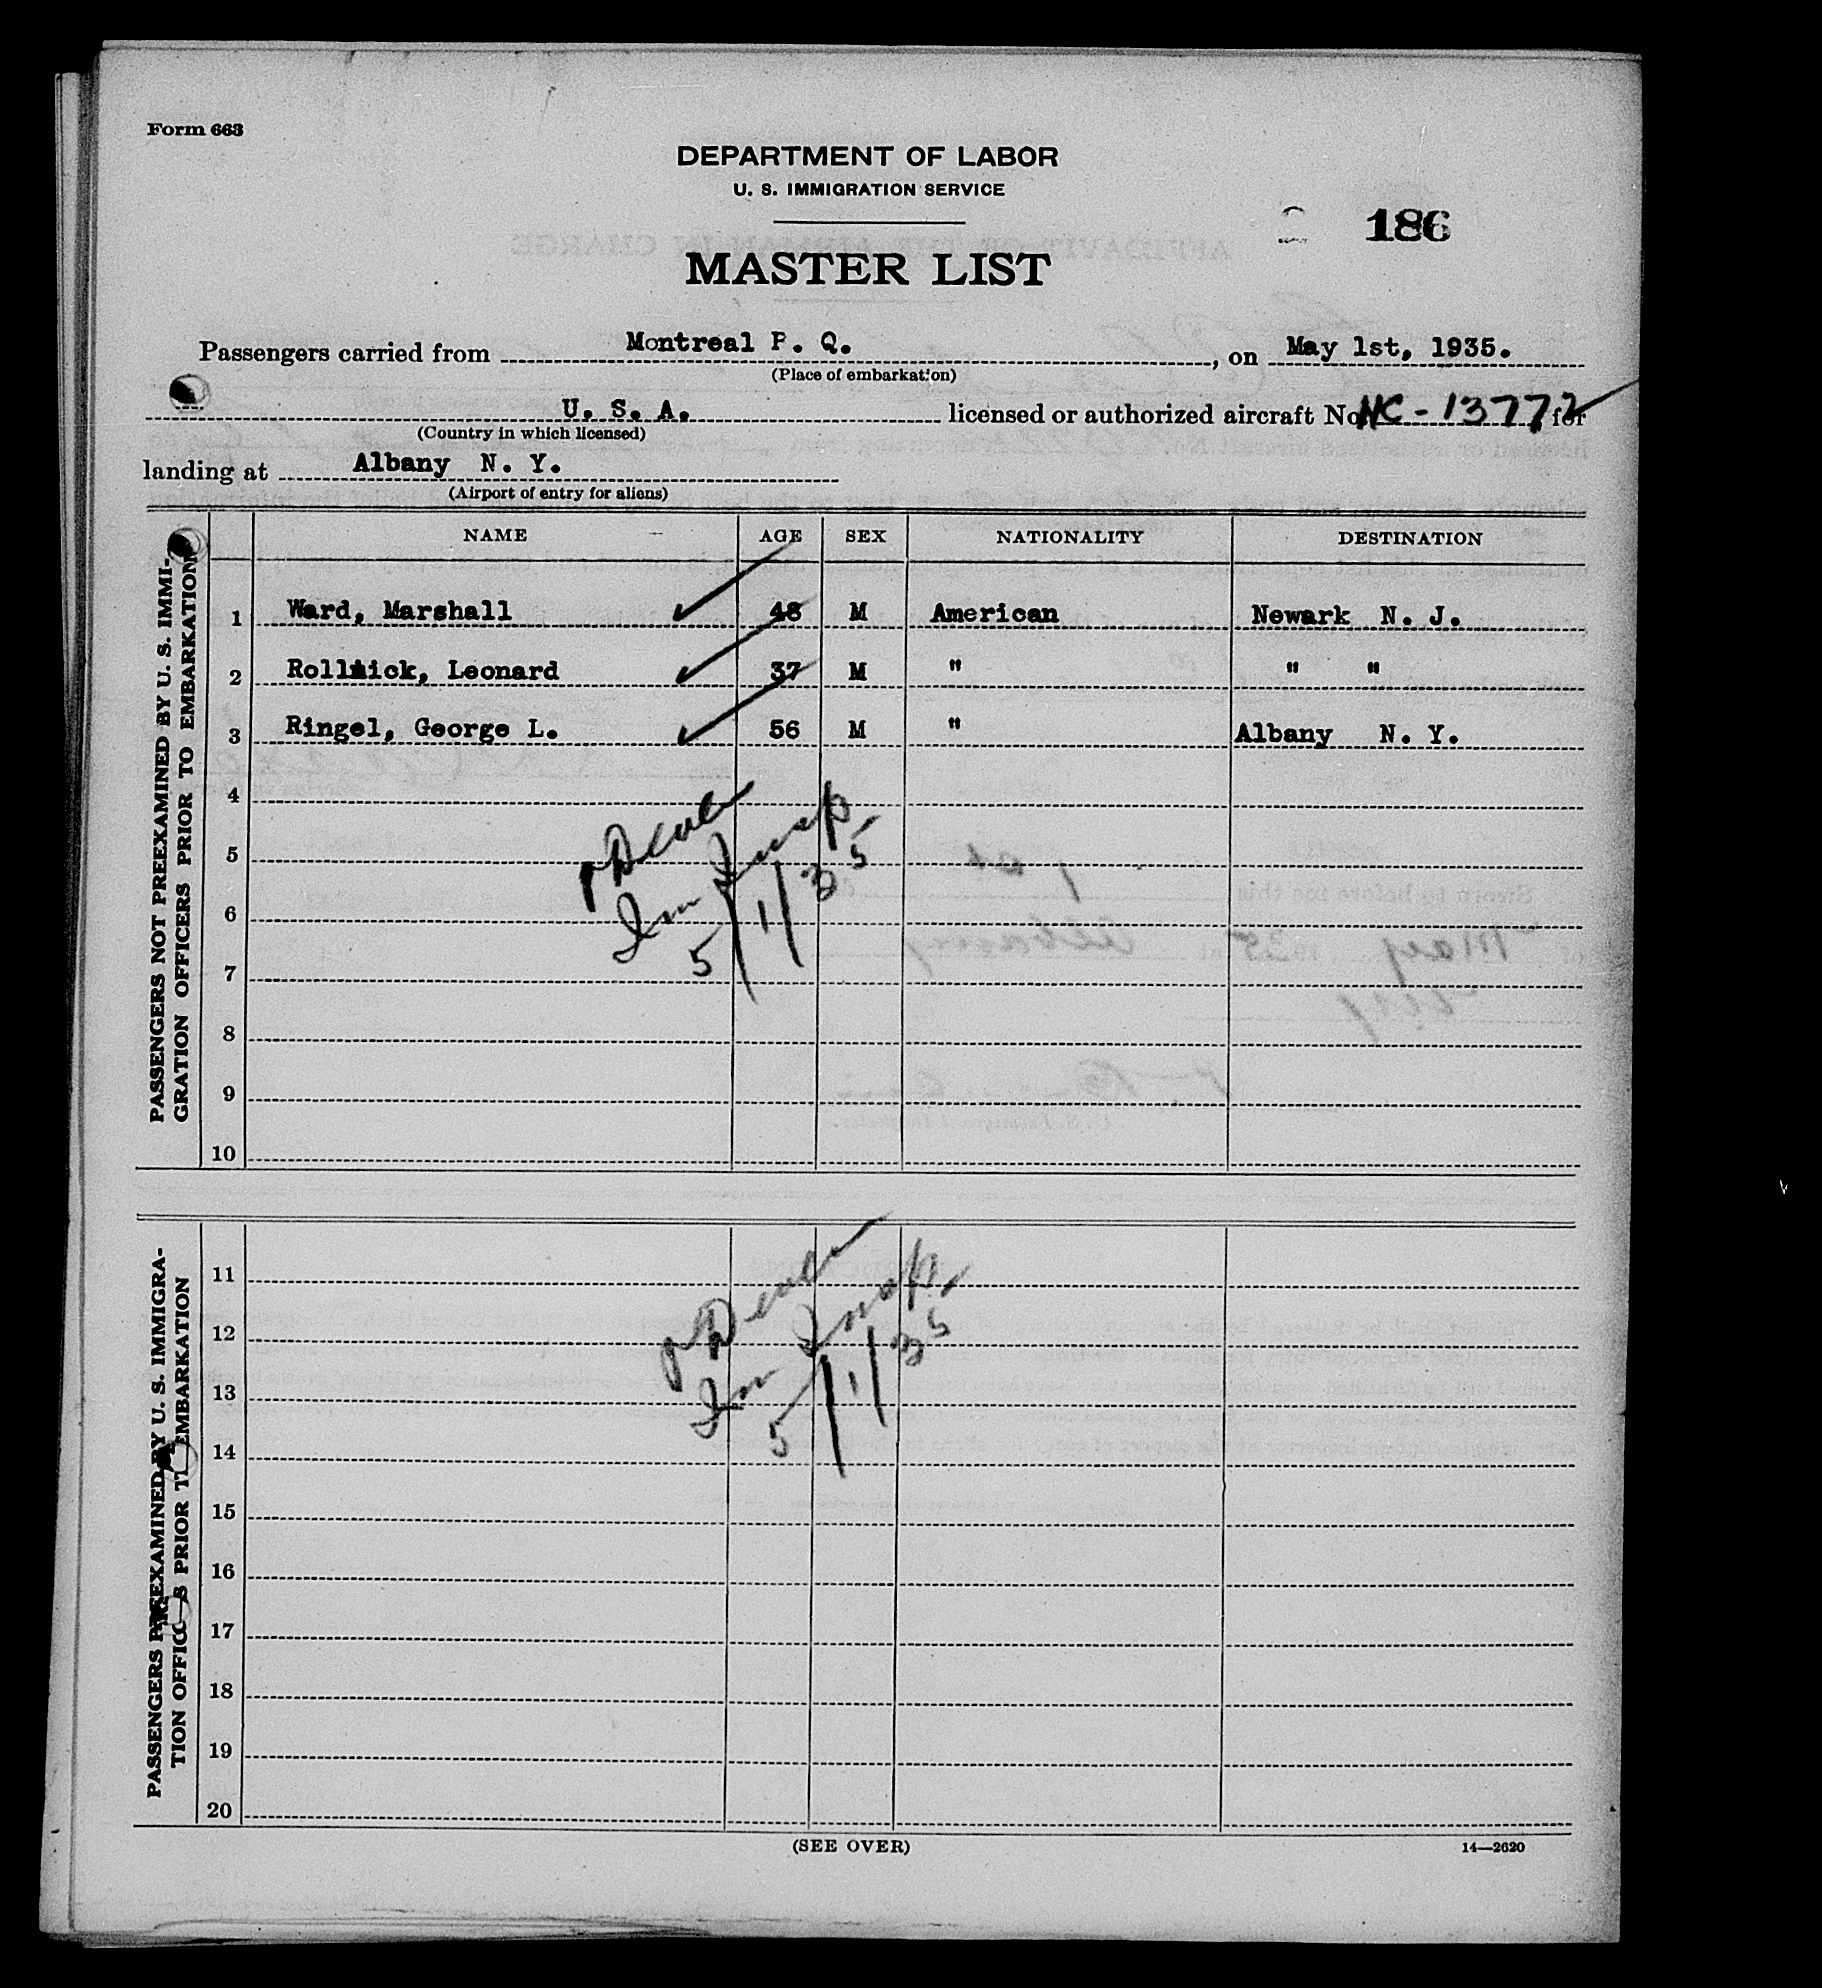 Form 663
DEPARTMENT OF LABOR
U. S. IMMIGRATION SERVICE
186
MASTER LIST
Passengers carried from Montreal P. Q. , on May 1st, 1935.
(Place of embarkation)
U. S. A. licensed or authorized aircraft No. NC-13772, for
(Country in which licensed)
landing at Albany N. Y.
(Airport of entry for aliens)
NAME AGE SEX NATIONALITY DESTINATION
PASSENGERS NOT PREEXAMINED BY U. S. IMMI-
GRATION OFFICERS PRIOR TO EMBARKATION
1 Ward, Marshall 48 M American Newark N. J.
2 Rollnick, Leonard 37 M " " "
3 Ringel, George L. 56 M " Albany N. Y.
4
5
6
7
8
9
10
Imm Insp
5/1/35
PASSENGERS PREEXAMINED BY U. S. IMMIGRA-
TION OFFICERS PRIOR TO EMBARKATION
11
12
13
14
15
16
17
18
19
20
Imm Insp.
5/1/35
(SEE OVER)
14—2620